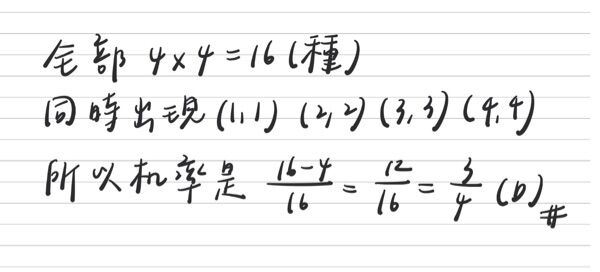 全部 4×4=16(種)
同時出現(1,1) (2,2) (3,3) (4,4)
所以机率是 \frac{16-4}{16} = \frac{12}{16} = \frac{3}{4} (D)#